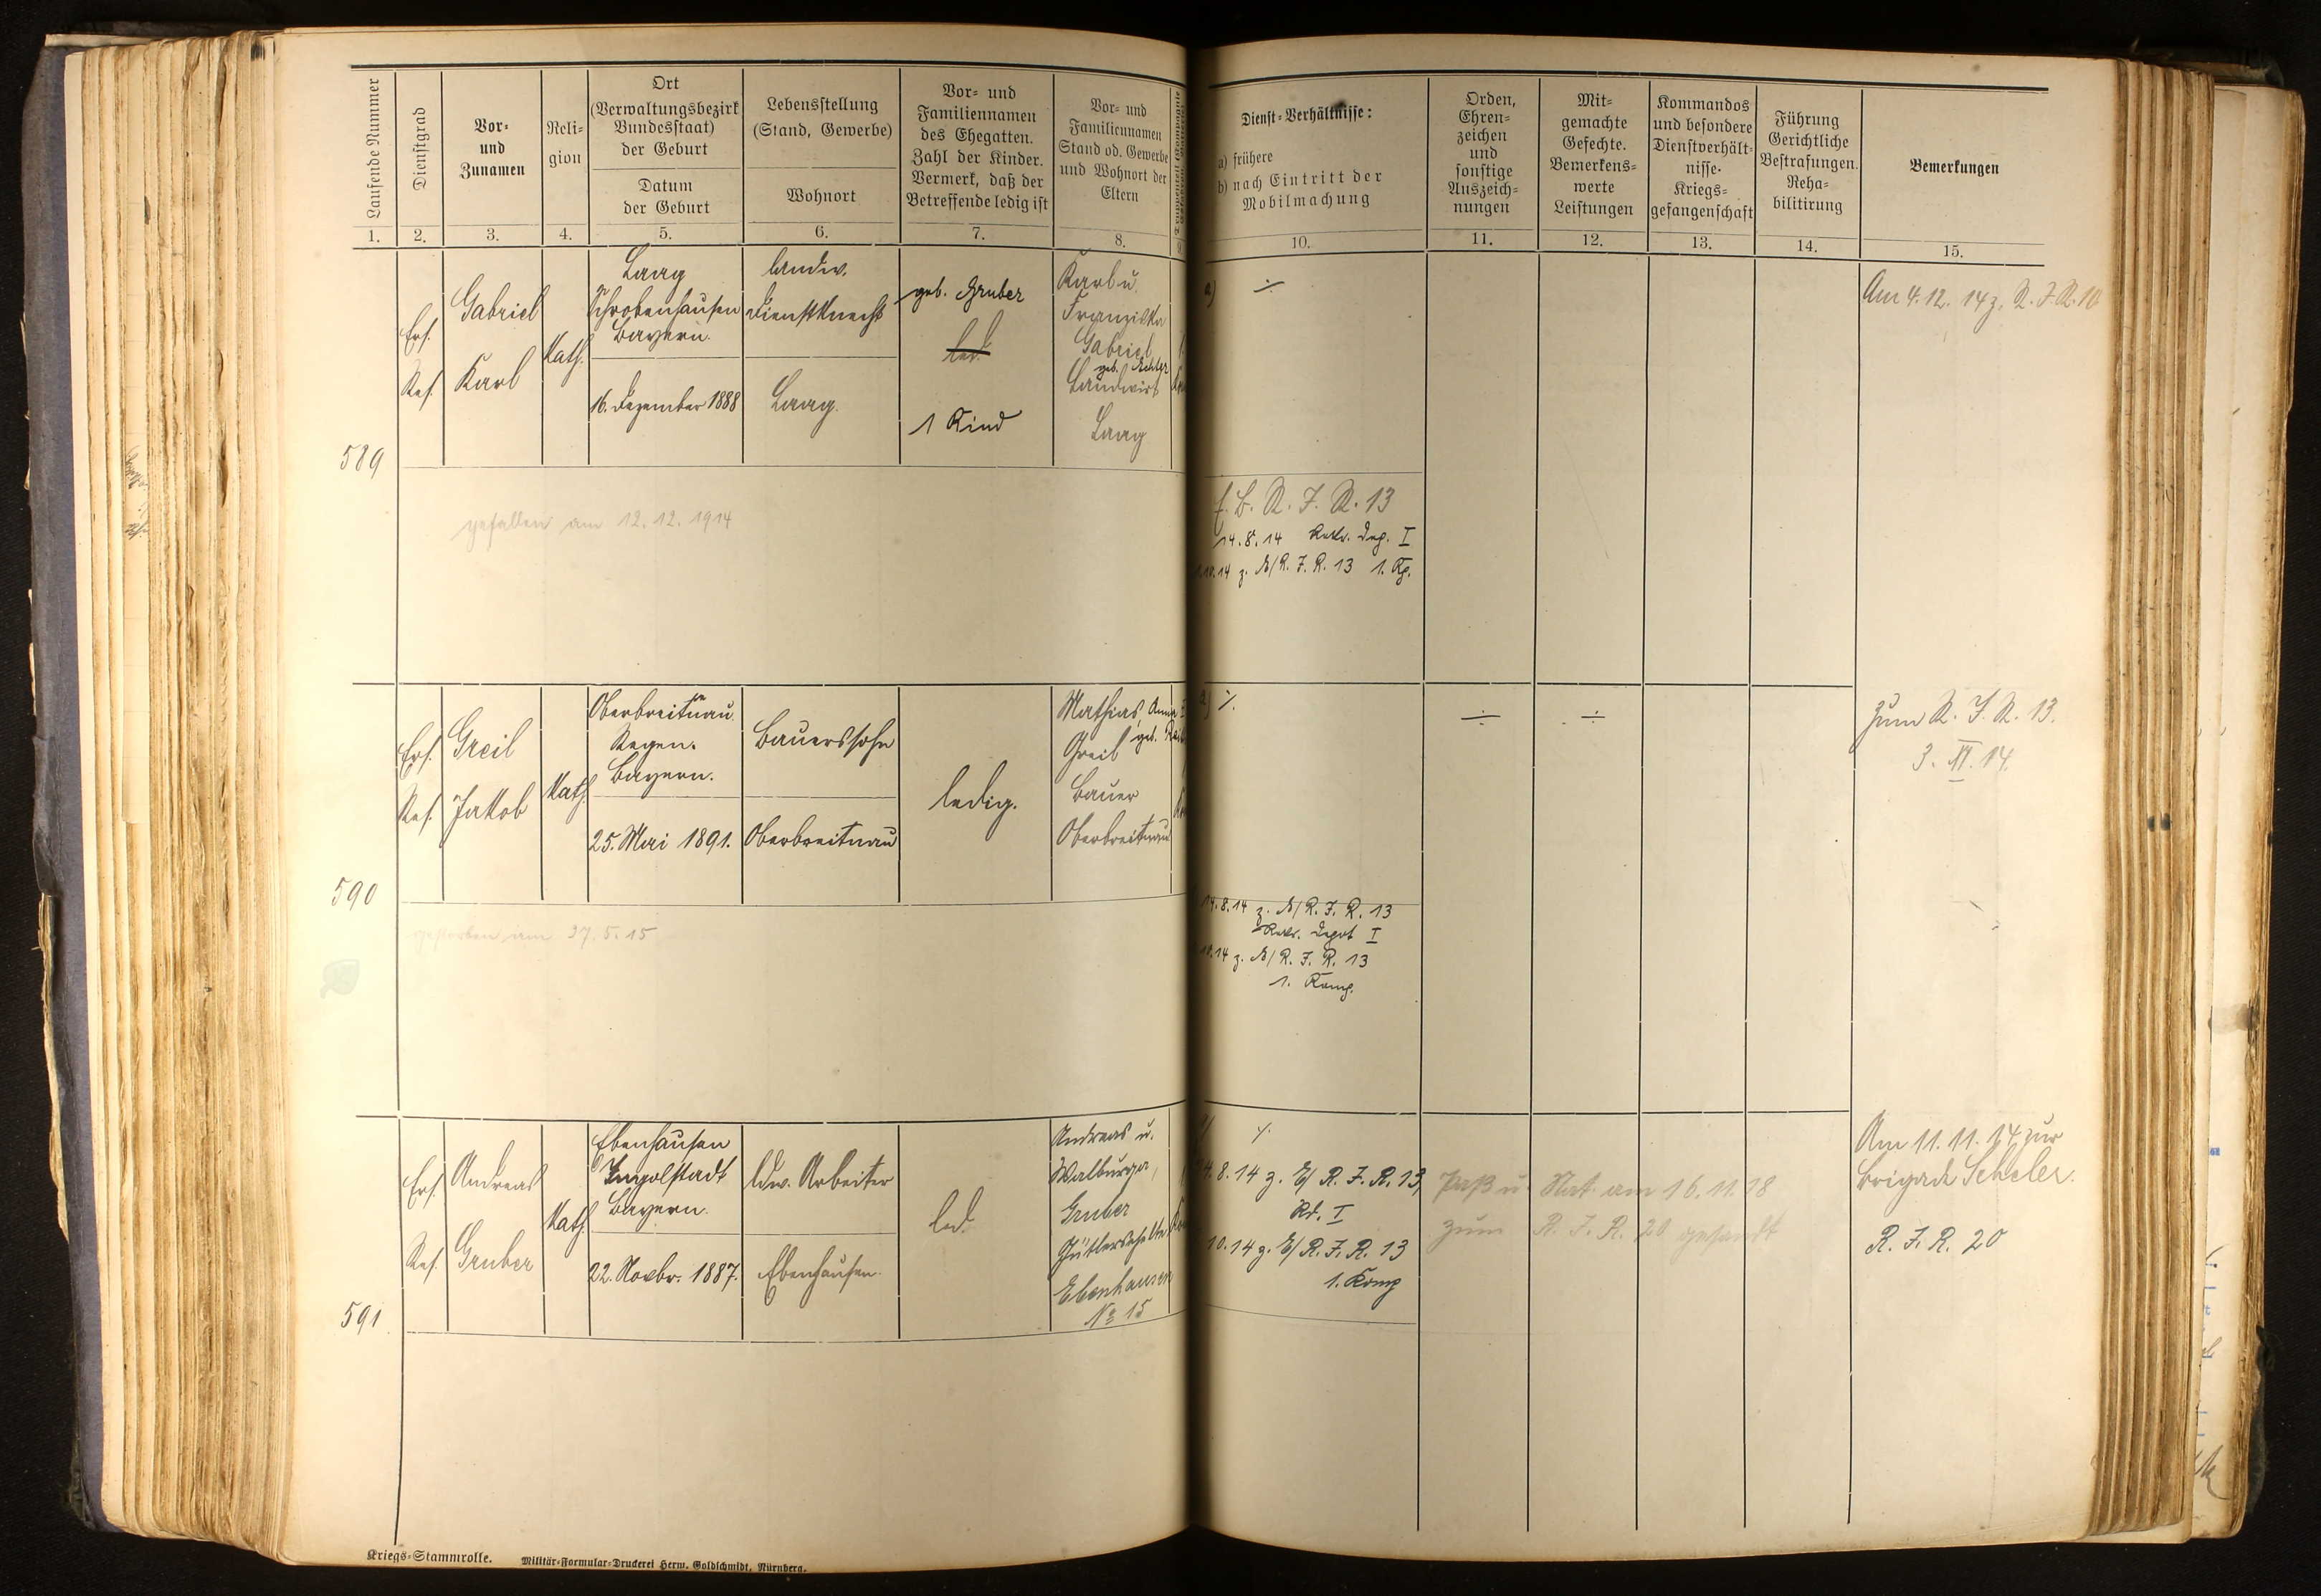 Laufende Nummer
Dienstgrad
Vor-
und
Zunamen
Reli-
gion
Ort
(Verwaltungsbezirk
Bundesstaat)
der Geburt
Datum
der Geburt
Lebensstellung
(Stand, Gewerbe)
Wohnort
Vor- und
Familiennamen
des Ehegatten.
Zahl der Kinder.
Vermerk, daß der
Betreffende ledig ist
Vor- und
Familiennamen
Stand od. Gewerbe
und Wohnort der
Eltern
Dienst-Verhältnisse:
a) frühere
b) nach Eintritt der
Mobilmachung
Orden,
Ehren-
zeichen
und
sonstige
Auszeich-
nungen
Mit-
gemachte
Gefechte.
Bemerkens-
werte
Leistungen
Kommandos
und besondere
Dienstverhält-
nisse.
Kriegs-
gefangenschaft
Führung
Gerichtliche
Bestrafungen.
Reha-
bilitirung
Bemerkungen
1. 2. 3. 4. 5. 6. 7. 8. 10. 11. 12. 13. 14. 15.
589
Ers.
Res.
Gabriel
Karl
Kath.
Laag
Schrobenhausen
Bayern.
16. Dezember 1888
landw.
Dienstknecht
Laag.
geb. Gruber
led.
1 Kind
Karl u.
Franziska
Gabriel
geb.
Landwirt
Laag
a) ÷
E. B. R. I. R. 13
14.8.14 Rekr. Dep. I
10.14 z. E/R. I. R. 13 1. Kp.
Am 4.12. 14 z. R. I. R. 10
gefallen am 12.12.1914
590
Ers.
Res.
Greil
Jakob
Kath.
Oberbreitnau
Regen.
Bayern.
25. Mai 1891.
Bauerssohn
Oberbreitnau
ledig.
Mathias, Anna
Greil geb.
Bauer
Oberbreitnau
a) ÷
÷
÷
14.8.14 z. E/R. I. R. 13
Rekr. Depot I
10.14 z. E/R. I. R. 13
1. Komp.
Zum R. I. R. 13.
3. XI. 14.
gestorben am 27.5.15
591
Ers.
Res.
Andreas
Gruber
Kath.
Ebenhausen
Ingolstadt
Bayern.
22. Novbr. 1887.
ldw. Arbeiter
Ebenhausen.
led.
Andreas u.
Walburga,
Gruber
Gütlerseheleute
Ebenhausen
No 15
a) ÷
14.8.14 z. E/ R. I. R. 13,
Rd. I
10.14 z. E/ R. I. R. 13
1. Komp
Paß u. Nat. am 16.11.18
zum R. I. R. 20 gesandt
Am 11.11.14 zur
Brigade Scheler.
R. I. R. 20
Kriegs-Stammrolle. Militär-Formular-Druckerei Herm. Goldschmidt, Nürnberg.